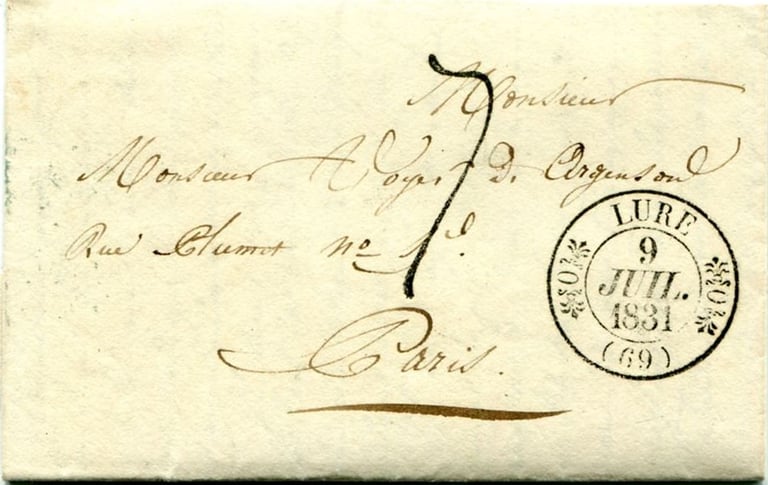 Monsieur
Monsieur Voyer D. Argenson
Rue Plumet no
Paris.
7
LURE
9
JUIL.
1831
(69)